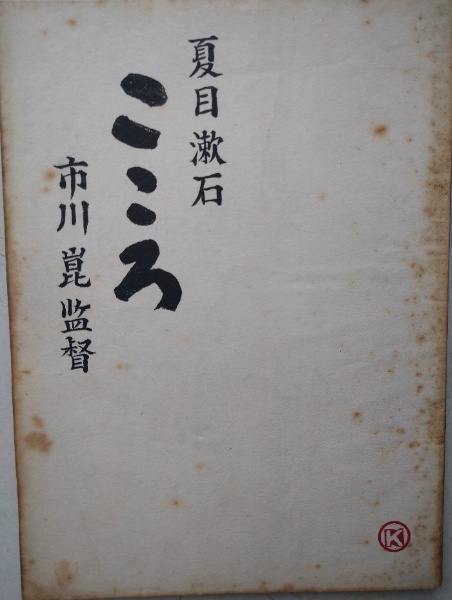 夏目漱石
こころ
市川崑監督
K